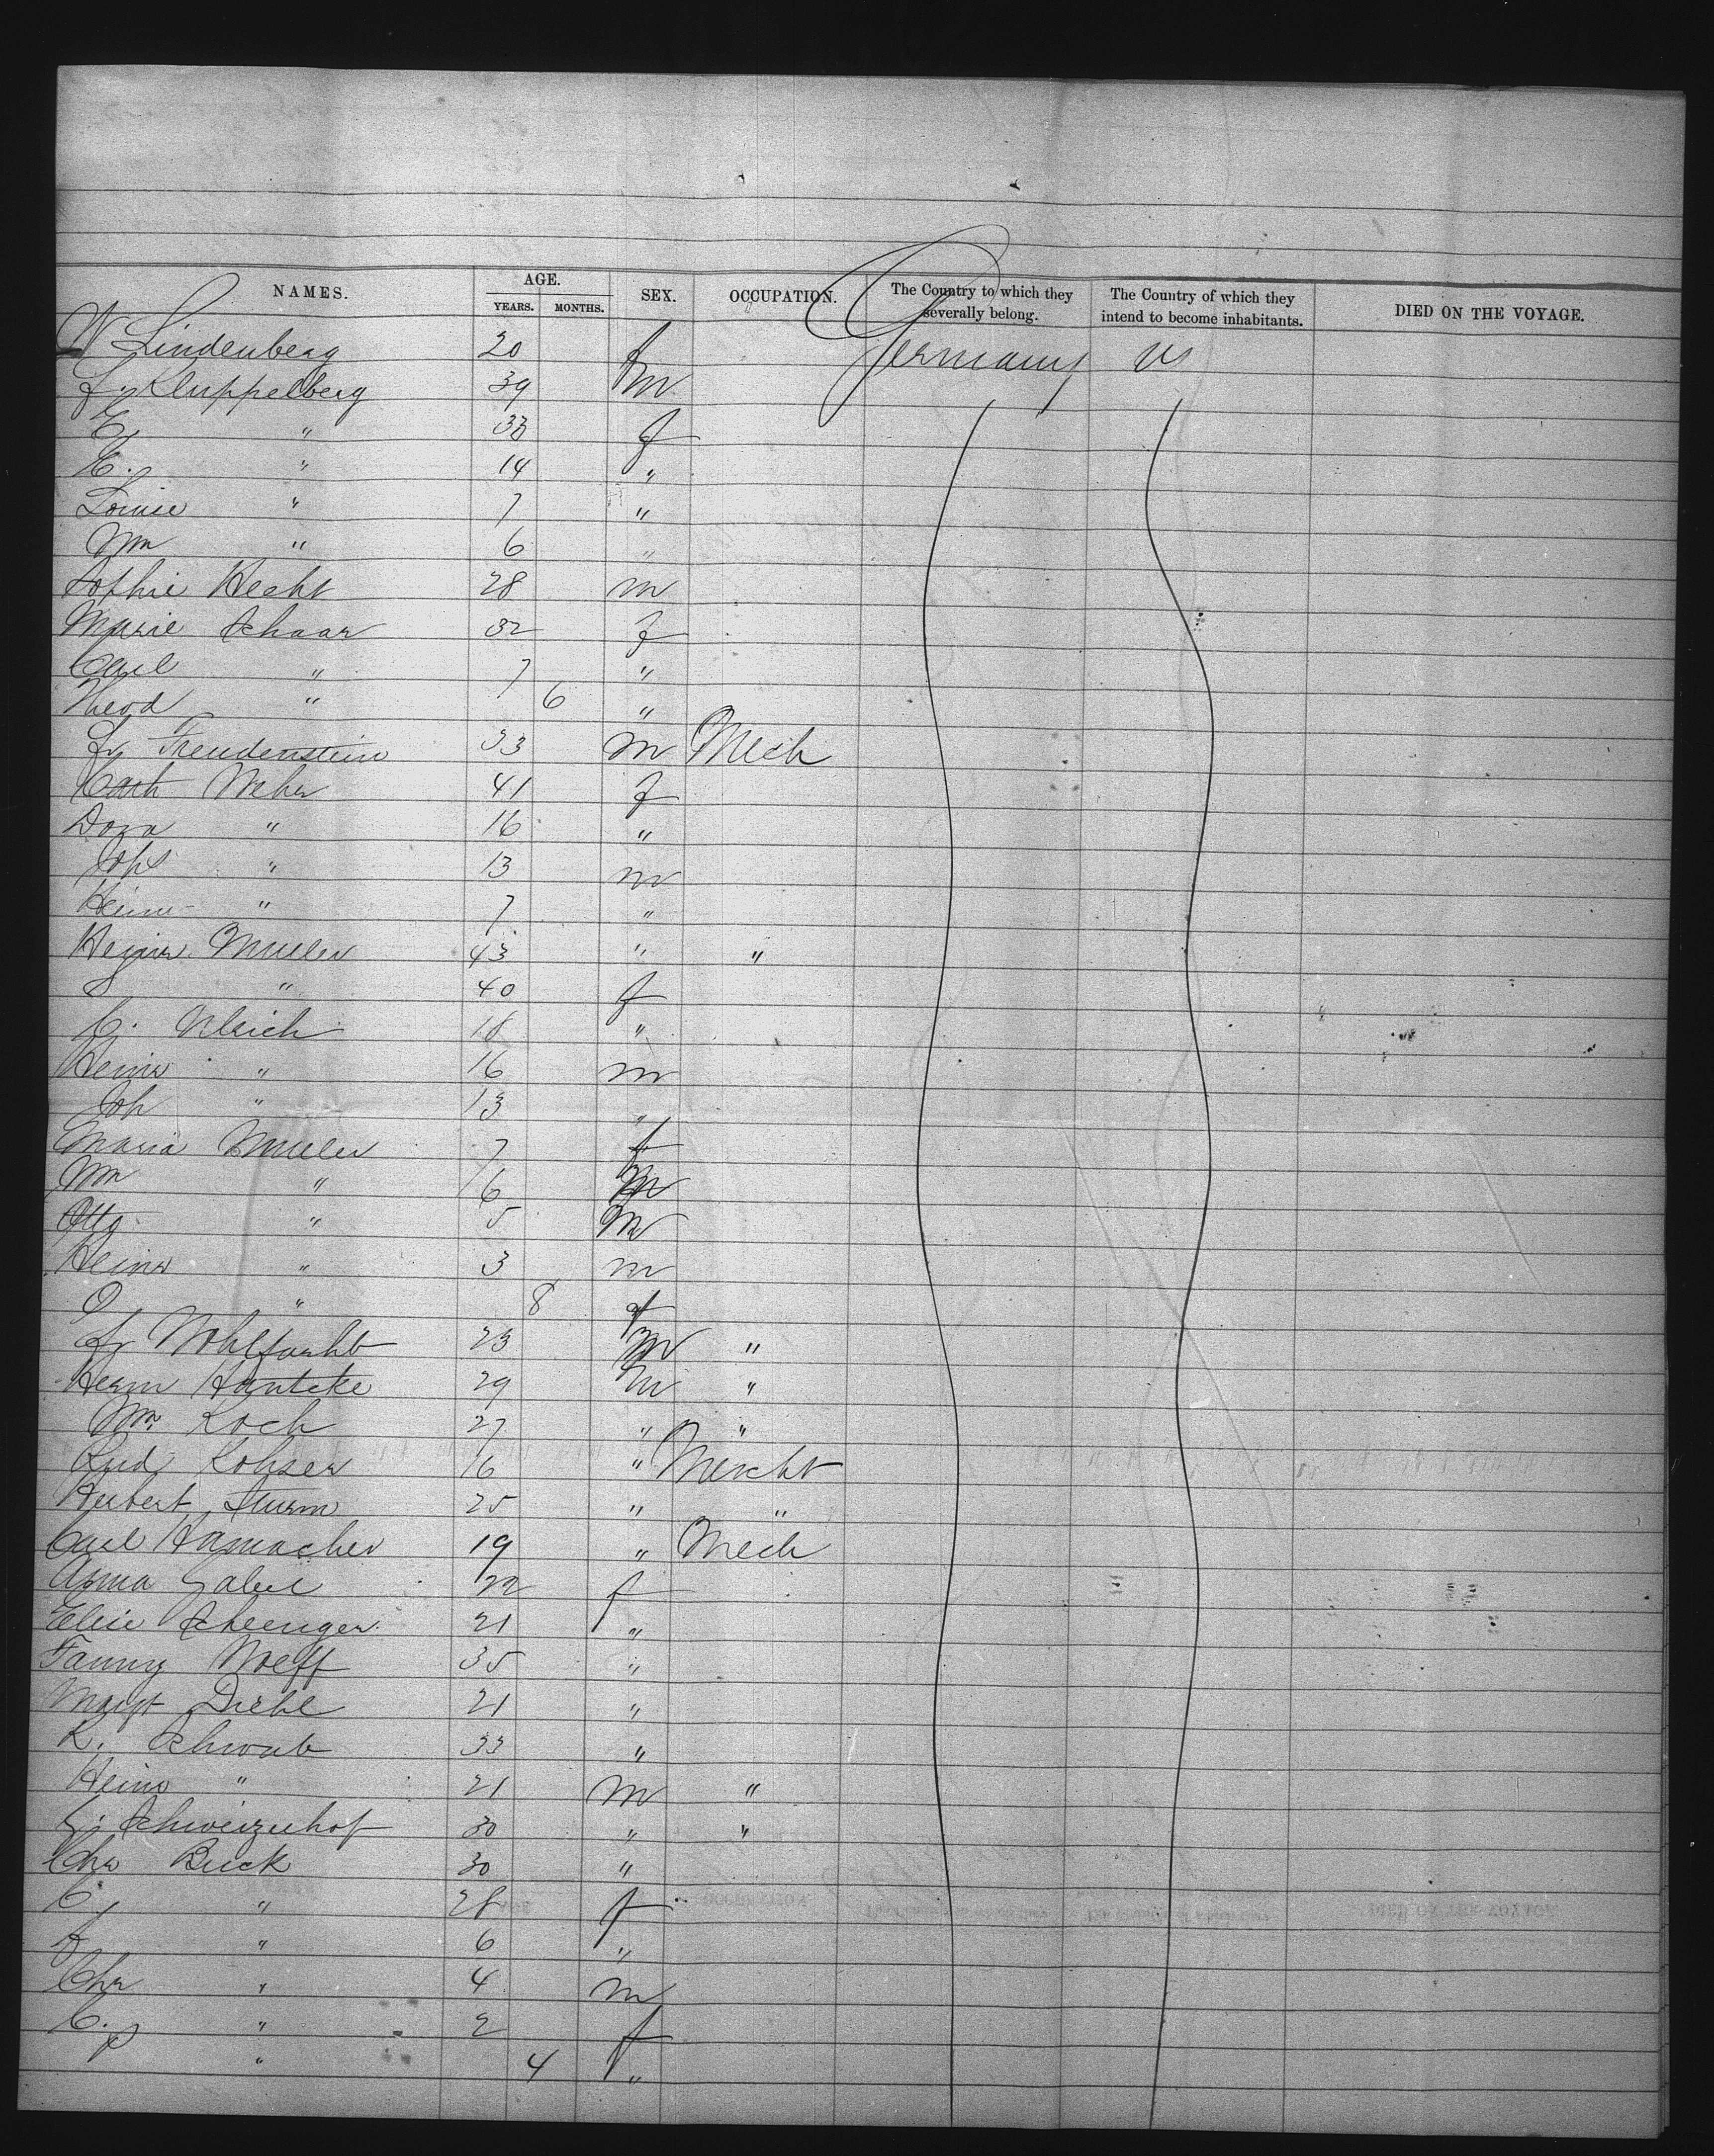 NAMES. AGE. YEARS. MONTHS. SEX. OCCUPATION. The Country to which they severally belong. The Country of which they intend to become inhabitants. DIED ON THE VOYAGE.
W Lindenberg 20 f Germany US
Fr Kluppelberg 39 m
E. " 33 f
H. " 14 "
Louise " 7 "
Wm " 6 "
Sophie Hecht 28 m
Marie Schaar 32 f
Carl " 7 "
Theod " 6 "
Fr Freudenstein 33 m Mech
Cath Weber 41 f
Dora " 16 "
Johs " 13 m
Heinr " 7 "
Heinr. Muller 43 " "
" 40 f
C. Ulrich 18 "
Heinr " 16 m
Joh " 13 "
Maria Muller 7 f
Wm " 6 m
Otto " 5 m
Heinr " 3 m
O " 8 f
Fr Wohlfarht 23 m "
Herm Hantcke 29 m "
Wm. Koch 27 " "
Rud Lohser 16 " Mercht
Hubert Sturm 25 " "
Carl Hamacher 19 " Mech
Anna Gabel 22 f
Elise 21 "
Fanny Wolff 35 "
Margt Diehl 21 "
K. Schwab 33 "
Heinr " 21 m "
G. Schweizerhof 30 " "
Chr Buck 30 "
C. " 28 f
" 6 "
Chr " 4 m
C. " 2 f
" 4 "